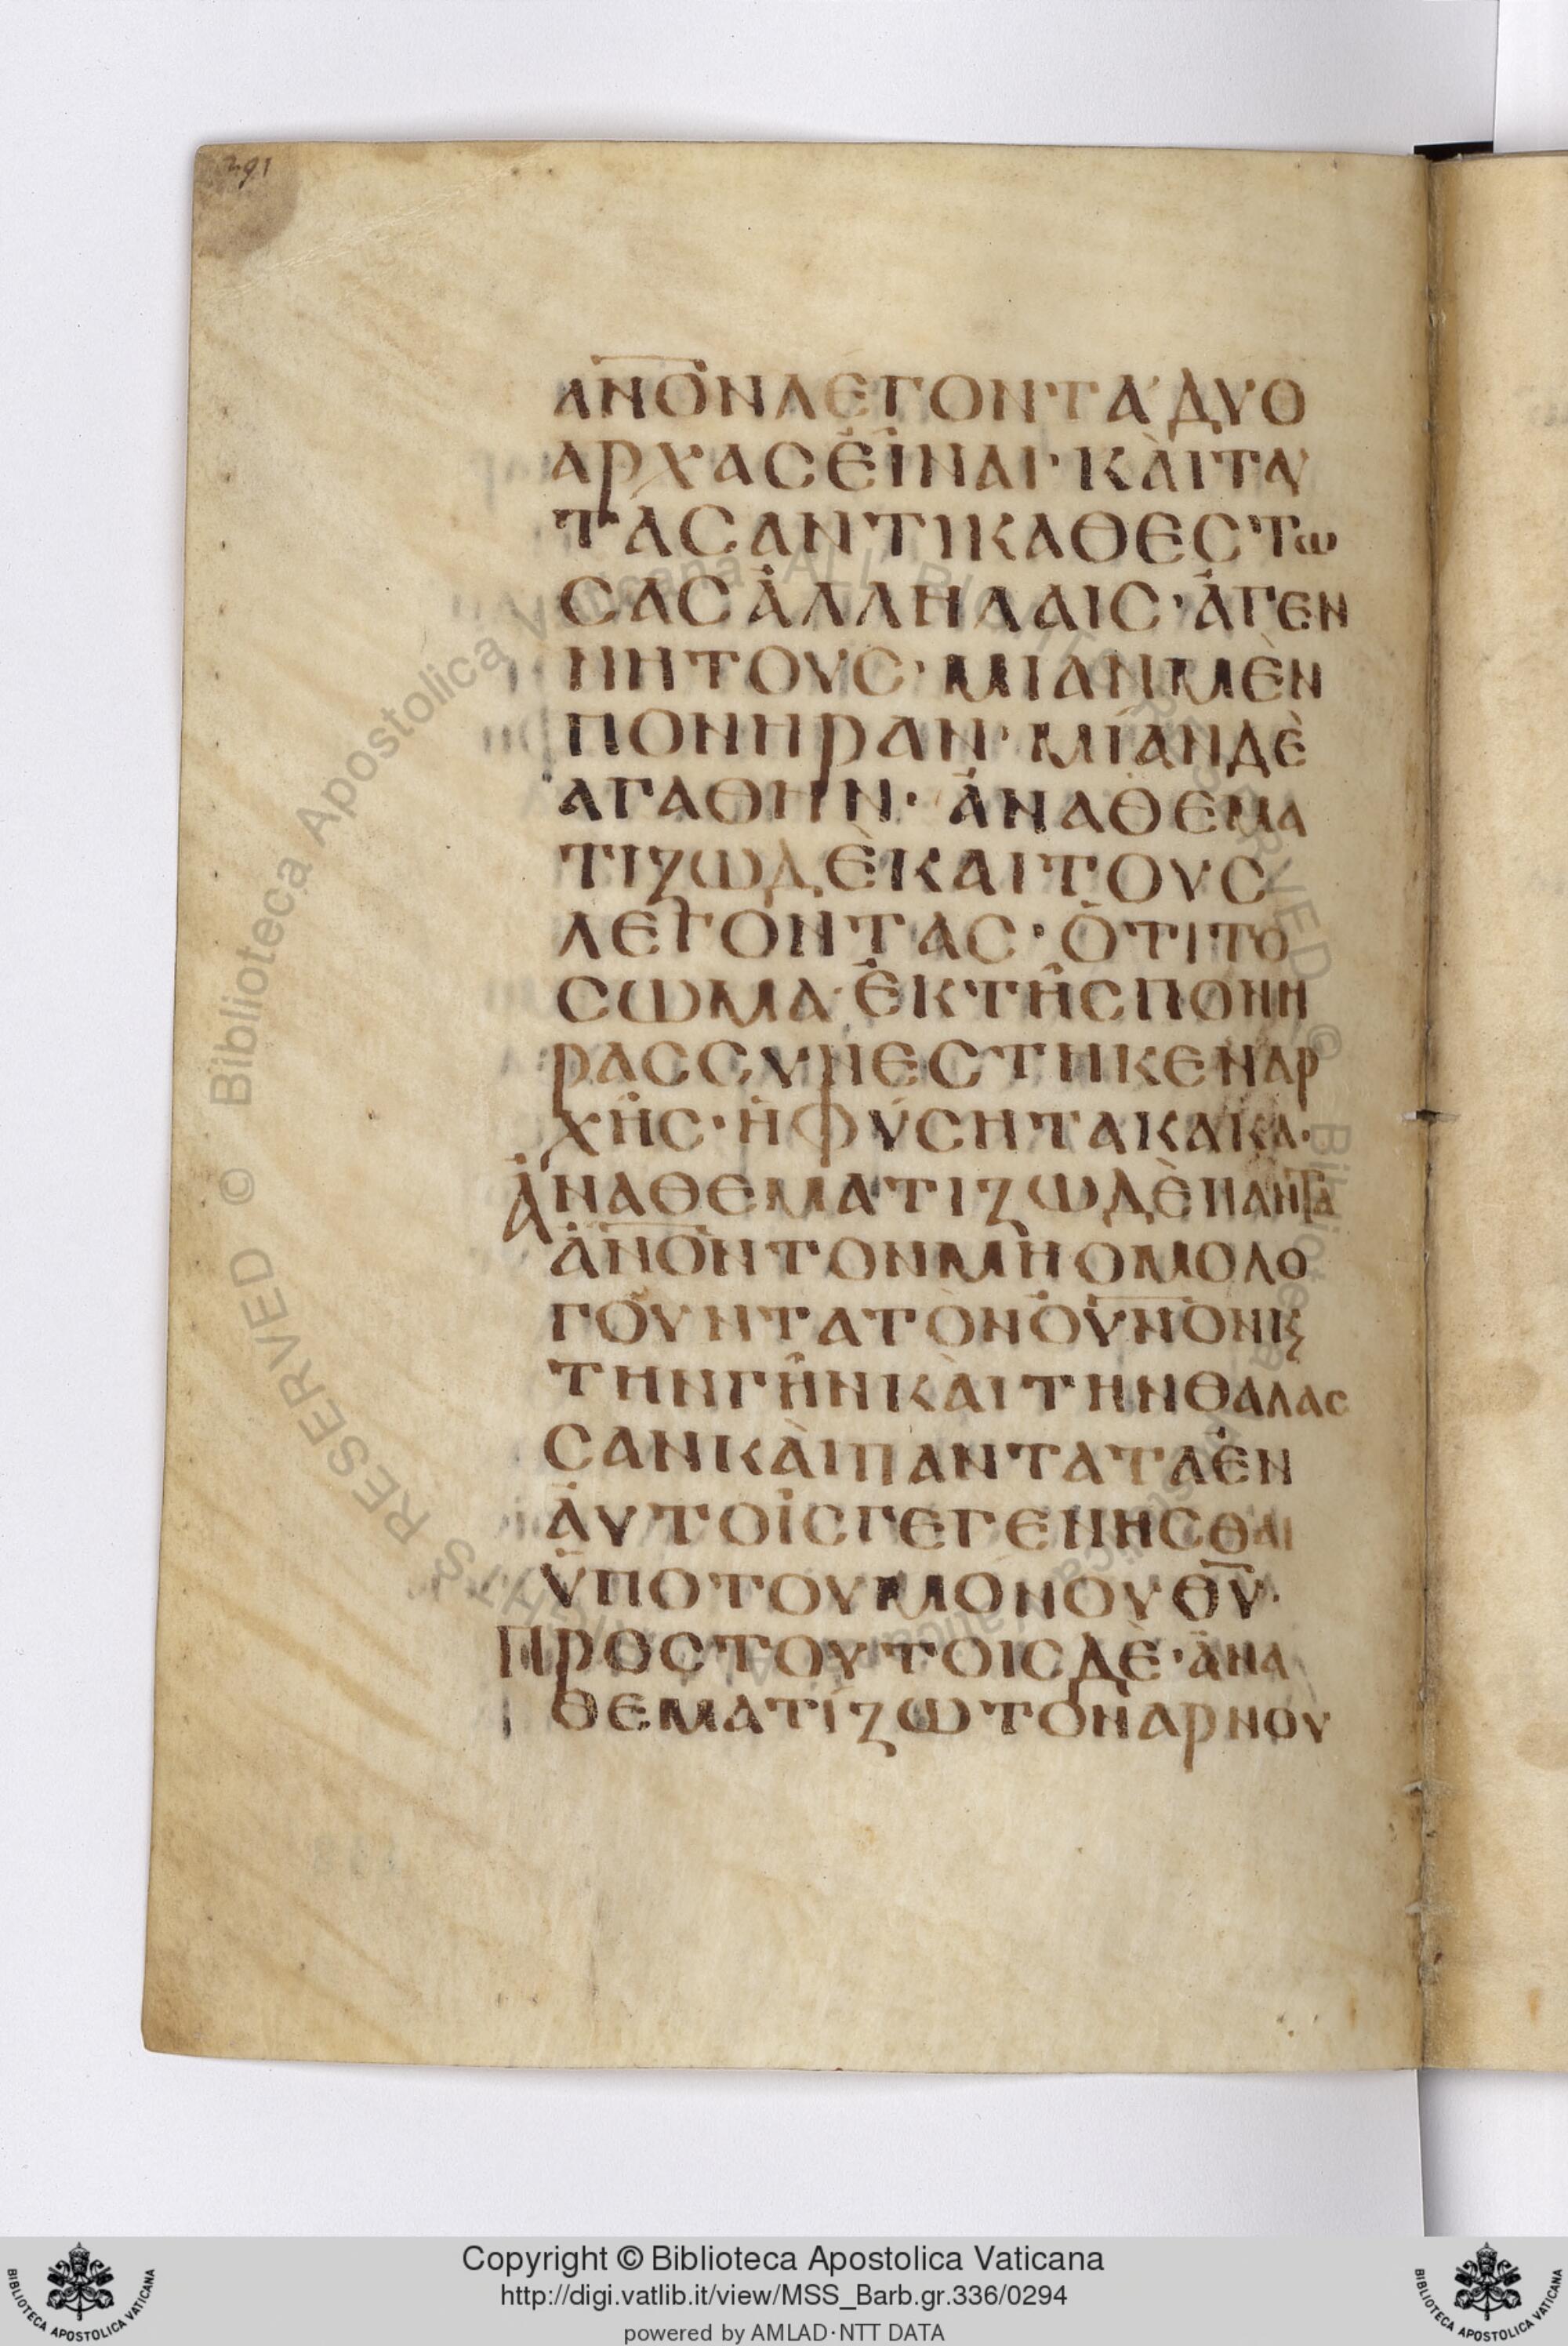 291
ΑΝ̅Ο̅ΝΛΕΓΟΝΤΑ ΔΥΟ
ΑΡΧΑΣΕΙΝΑΙ· ΚΑΙΤΑΥ
ΤΑΣΑΝΤΙΚΑΘΕΣΤω
ΣΑΣΑΛΛΗΛΑΙΣ·ΑΓΕΝ
ΝΗΤΟΥΣ· ΜΙΑΝΜΕΝ
ΠΟΝΗΡΑΝ· ΜΙΑΝΔΕ
ΑΓΑΘΗΝ· ΑΝΑΘΕΜΑ
ΤΙΖΩΔΕΚΑΙΤΟΥΣ
ΛΕΓΟΝΤΑΣ· ΟΤΙΤΟ
ΣΩΜΑ·ΕΚΤΗΣΠΟΝΗ
ΡΑΣΣΥΝΕΣΤΗΚΕΝΑΡ
ΧΗΣ·ΗΦΥΣΗΤΑΚΑΚΑ·
ΑΝΑΘΕΜΑΤΙΖΩΔΕΠΑΝΤΑ
ΑΝ̅Ο̅ΝΤΟΝΜΗΟΜΟΛΟ
ΓΟΥΝΤΑΤΟΝΟΥ̅Ν̅Ο̅ΝΚϚ
ΤΗΝΓΗΝΚΑΙΤΗΝΘΑΛΑΣ
ΣΑΝΚΑΙΠΑΝΤΑΤΑΕΝ
ΑΥΤΟΙΣΓΕΓΕΝΗΣΘΑΙ
ΫΠΟΤΟΥΜΟΝΟΥΘ̅Υ̅·
ΠΡΟΣΤΟΥΤΟΙΣΔΕ·ΑΝΑ
ΘΕΜΑΤΙΖΩΤΟΝΑΡΝΟΥ
Biblioteca Apostolica Vaticana ALL RIGHTS RESERVED ©
Copyright © Biblioteca Apostolica Vaticana
http://digi.vatlib.it/view/MSS_Barb.gr.336/0294
powered by AMLAD·NTT DATA
BIBLIOTECA APOSTOLICA VATICANA
BIBLIOTECA APOSTOLICA VATICANA